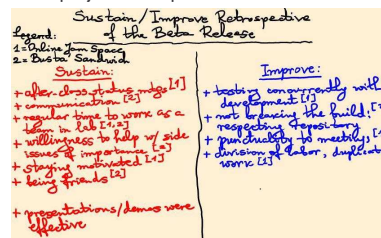 Sustain/Improve Retrospective
of the Beta Release
Legend:
1=Online Jam Space
2= Busta' Sandwich
Sustain:
+ after-class status mtgs [1]
+ communication [2]
+ regular time to work as a
team in lab [1,2]
+ willingness to help w/ side
issues of importance [2]
+ staying motivated [1]
+ being friends [2]
+ presentations/demos were
effective
Improve:
+ testing concurrently with
development [1]
+ not breaking the build;
respecting repository
+ punctuality to meetings,
+ division of labor, duplicate
work [1]